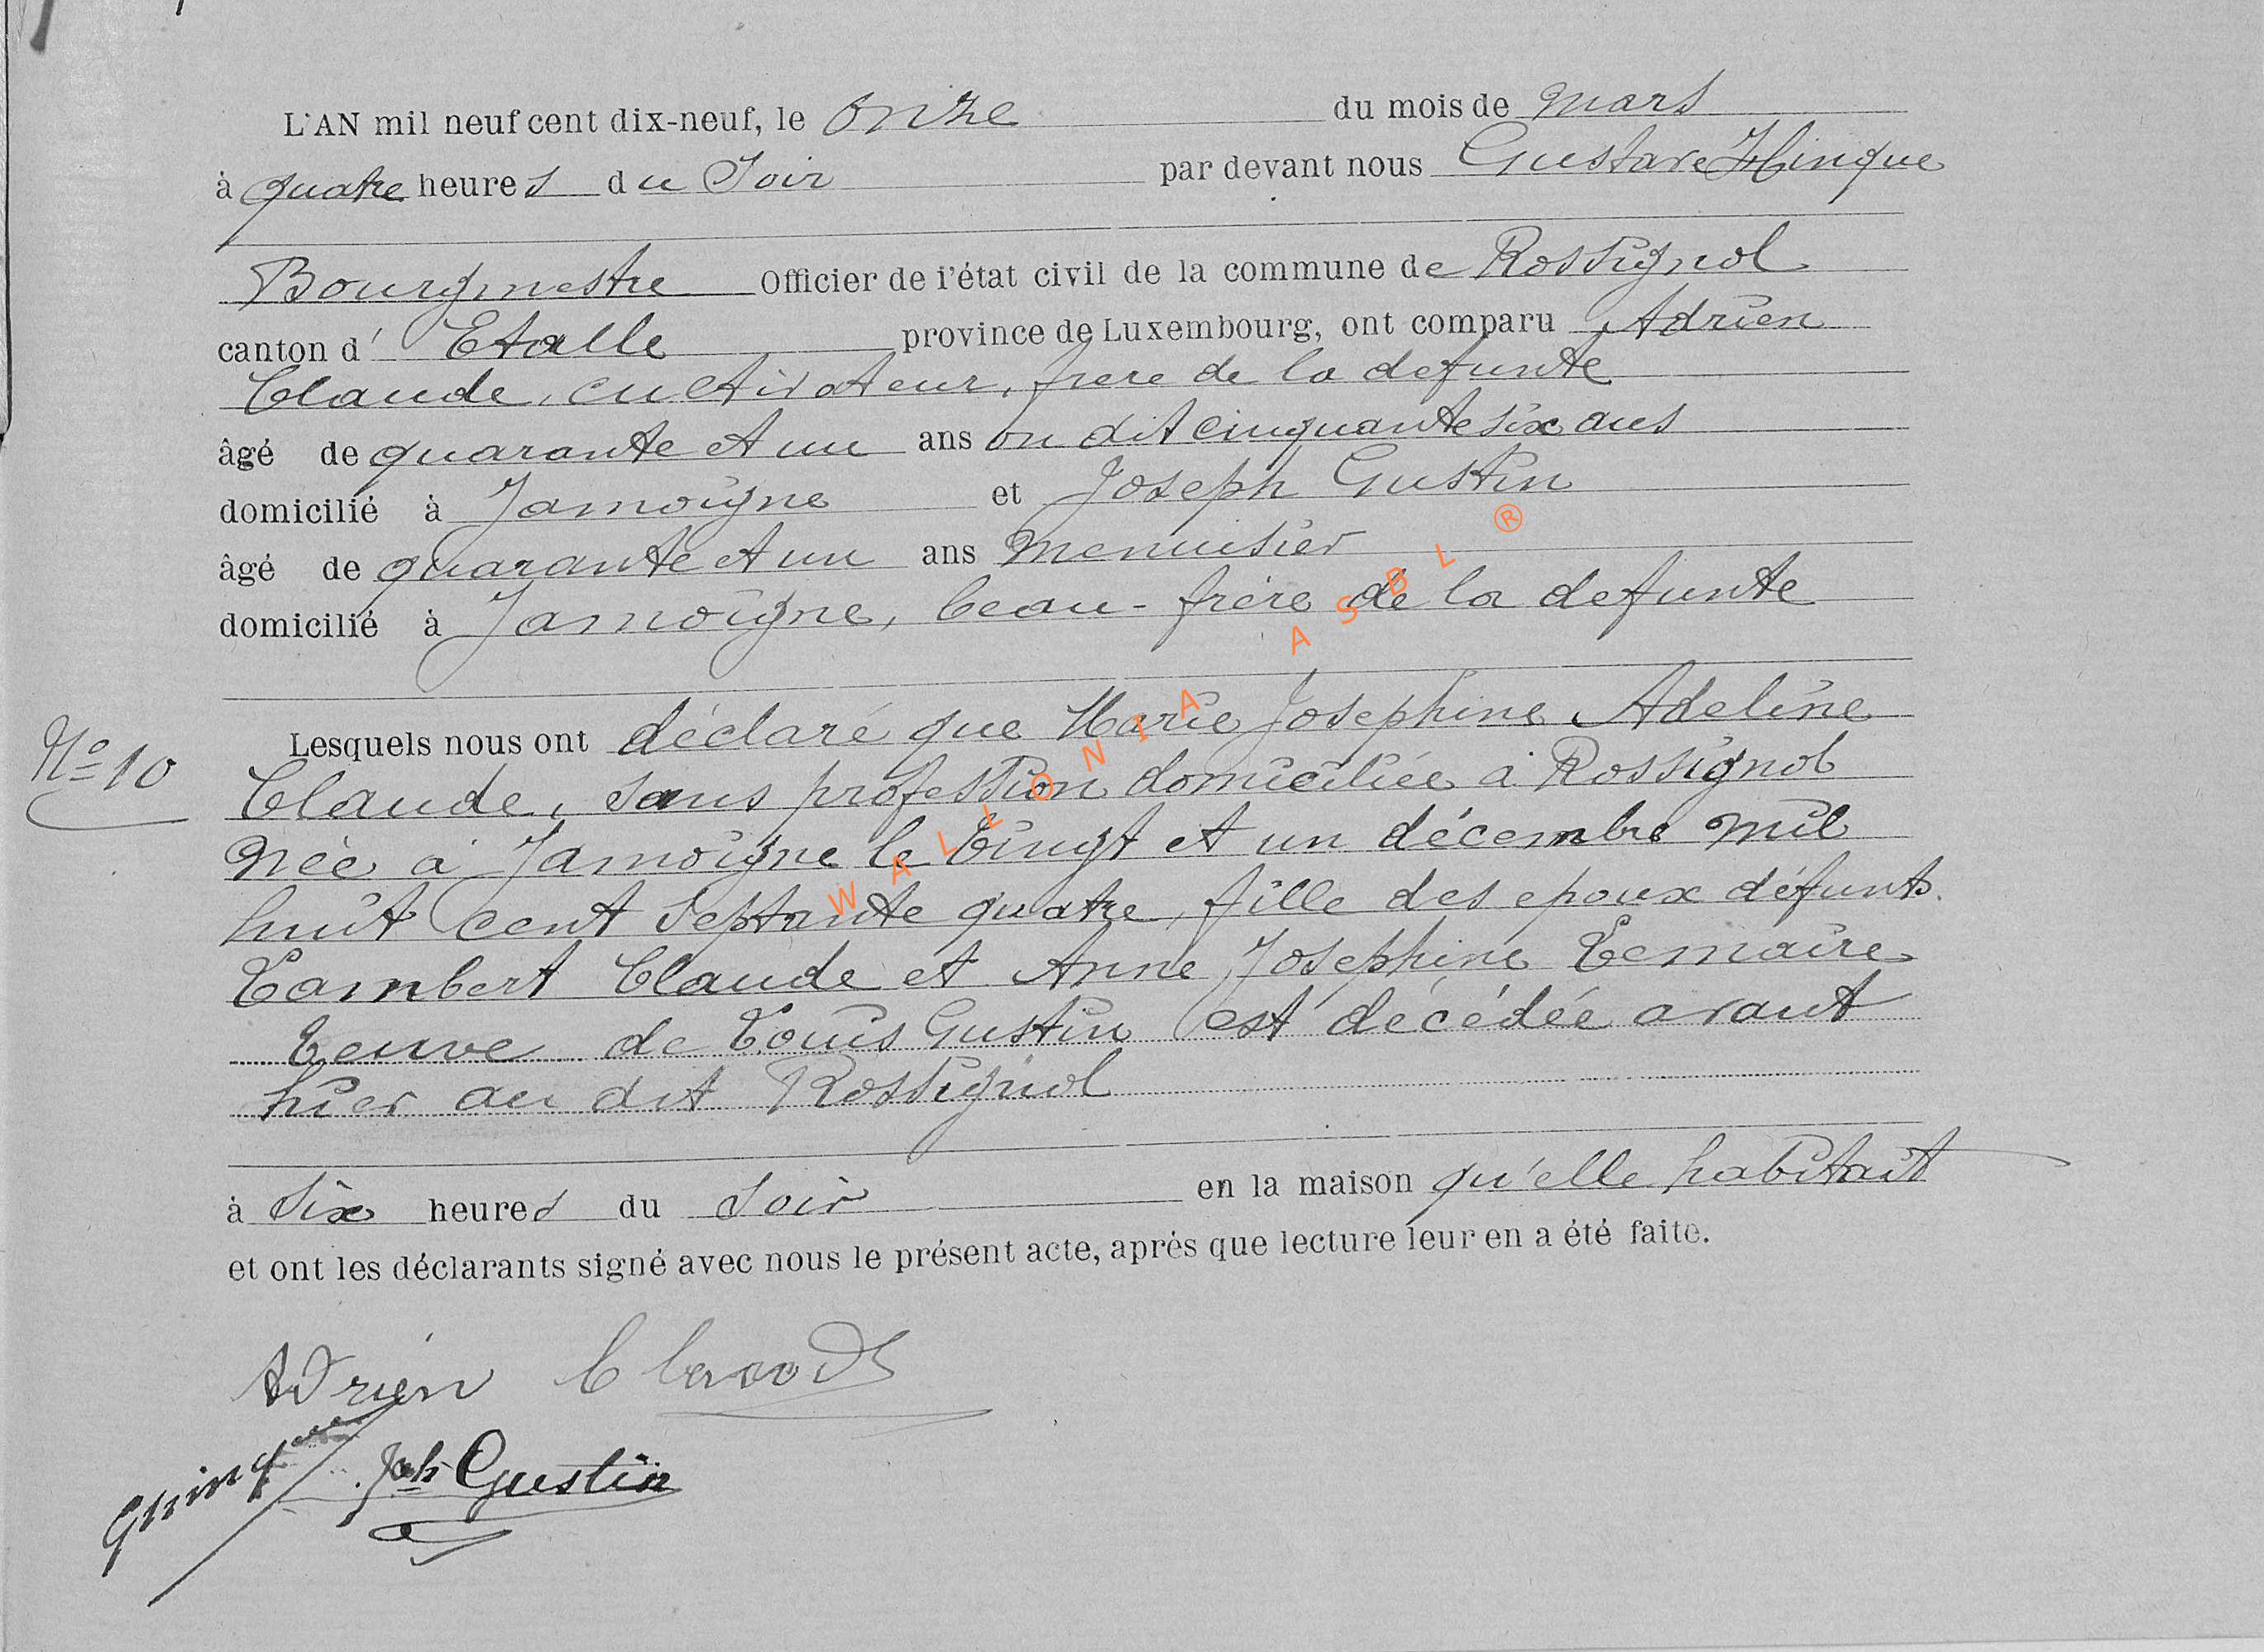 L'AN mil neuf cent dix-neuf, le onze du mois de mars
à quatre heures du Soir par devant nous Gustave Hinque
Bourgmestre Officier de l'état civil de la commune de Rossignol
canton d' Etalle province de Luxembourg, ont comparu Adrien
Claude, cultivateur, frere de la defunte
âgé de quarante et un ans on dit cinquante six ans
domicilié à Jamoigne et Joseph Gustin
âgé de quarante et un ans menuisier
domicilié à Jamoigne, beau-frère de la defunte
Lesquels nous ont déclaré que Marie Josephine Adeline
No 10
Claude, sans profession domiciliée à Rossignol
née à Jamoigne le vingt et un décembre mil
huit cent septante quatre, fille des epoux défunts
Lambert Claude et Anne Josephine Lemaire
Veuve de Louis Gustin est décédée avant
hier au dit Rossignol
à six heures du soir en la maison qu'elle habitait
et ont les déclarants signé avec nous le présent acte, après que lecture leur en a été faite.
Adrien Claude
Jph Gustin
WALLONIA ASBL ®